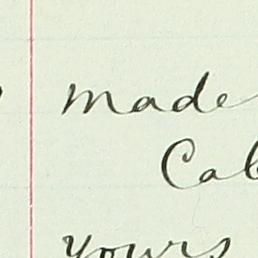 made
Cal
yours